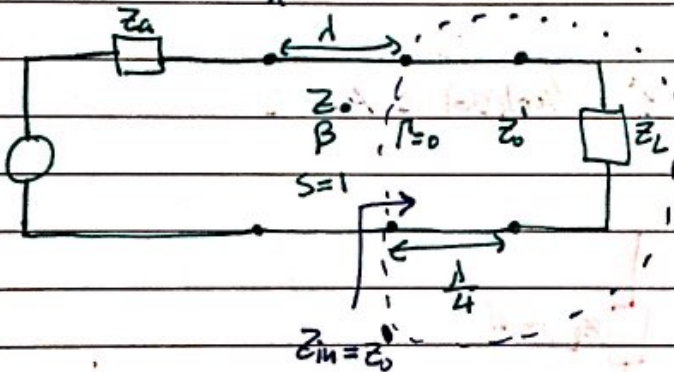 Za
λ
Z₀
β
Γ=0
Z₀'
Z_L
S=1
λ/4
Zin = Z₀